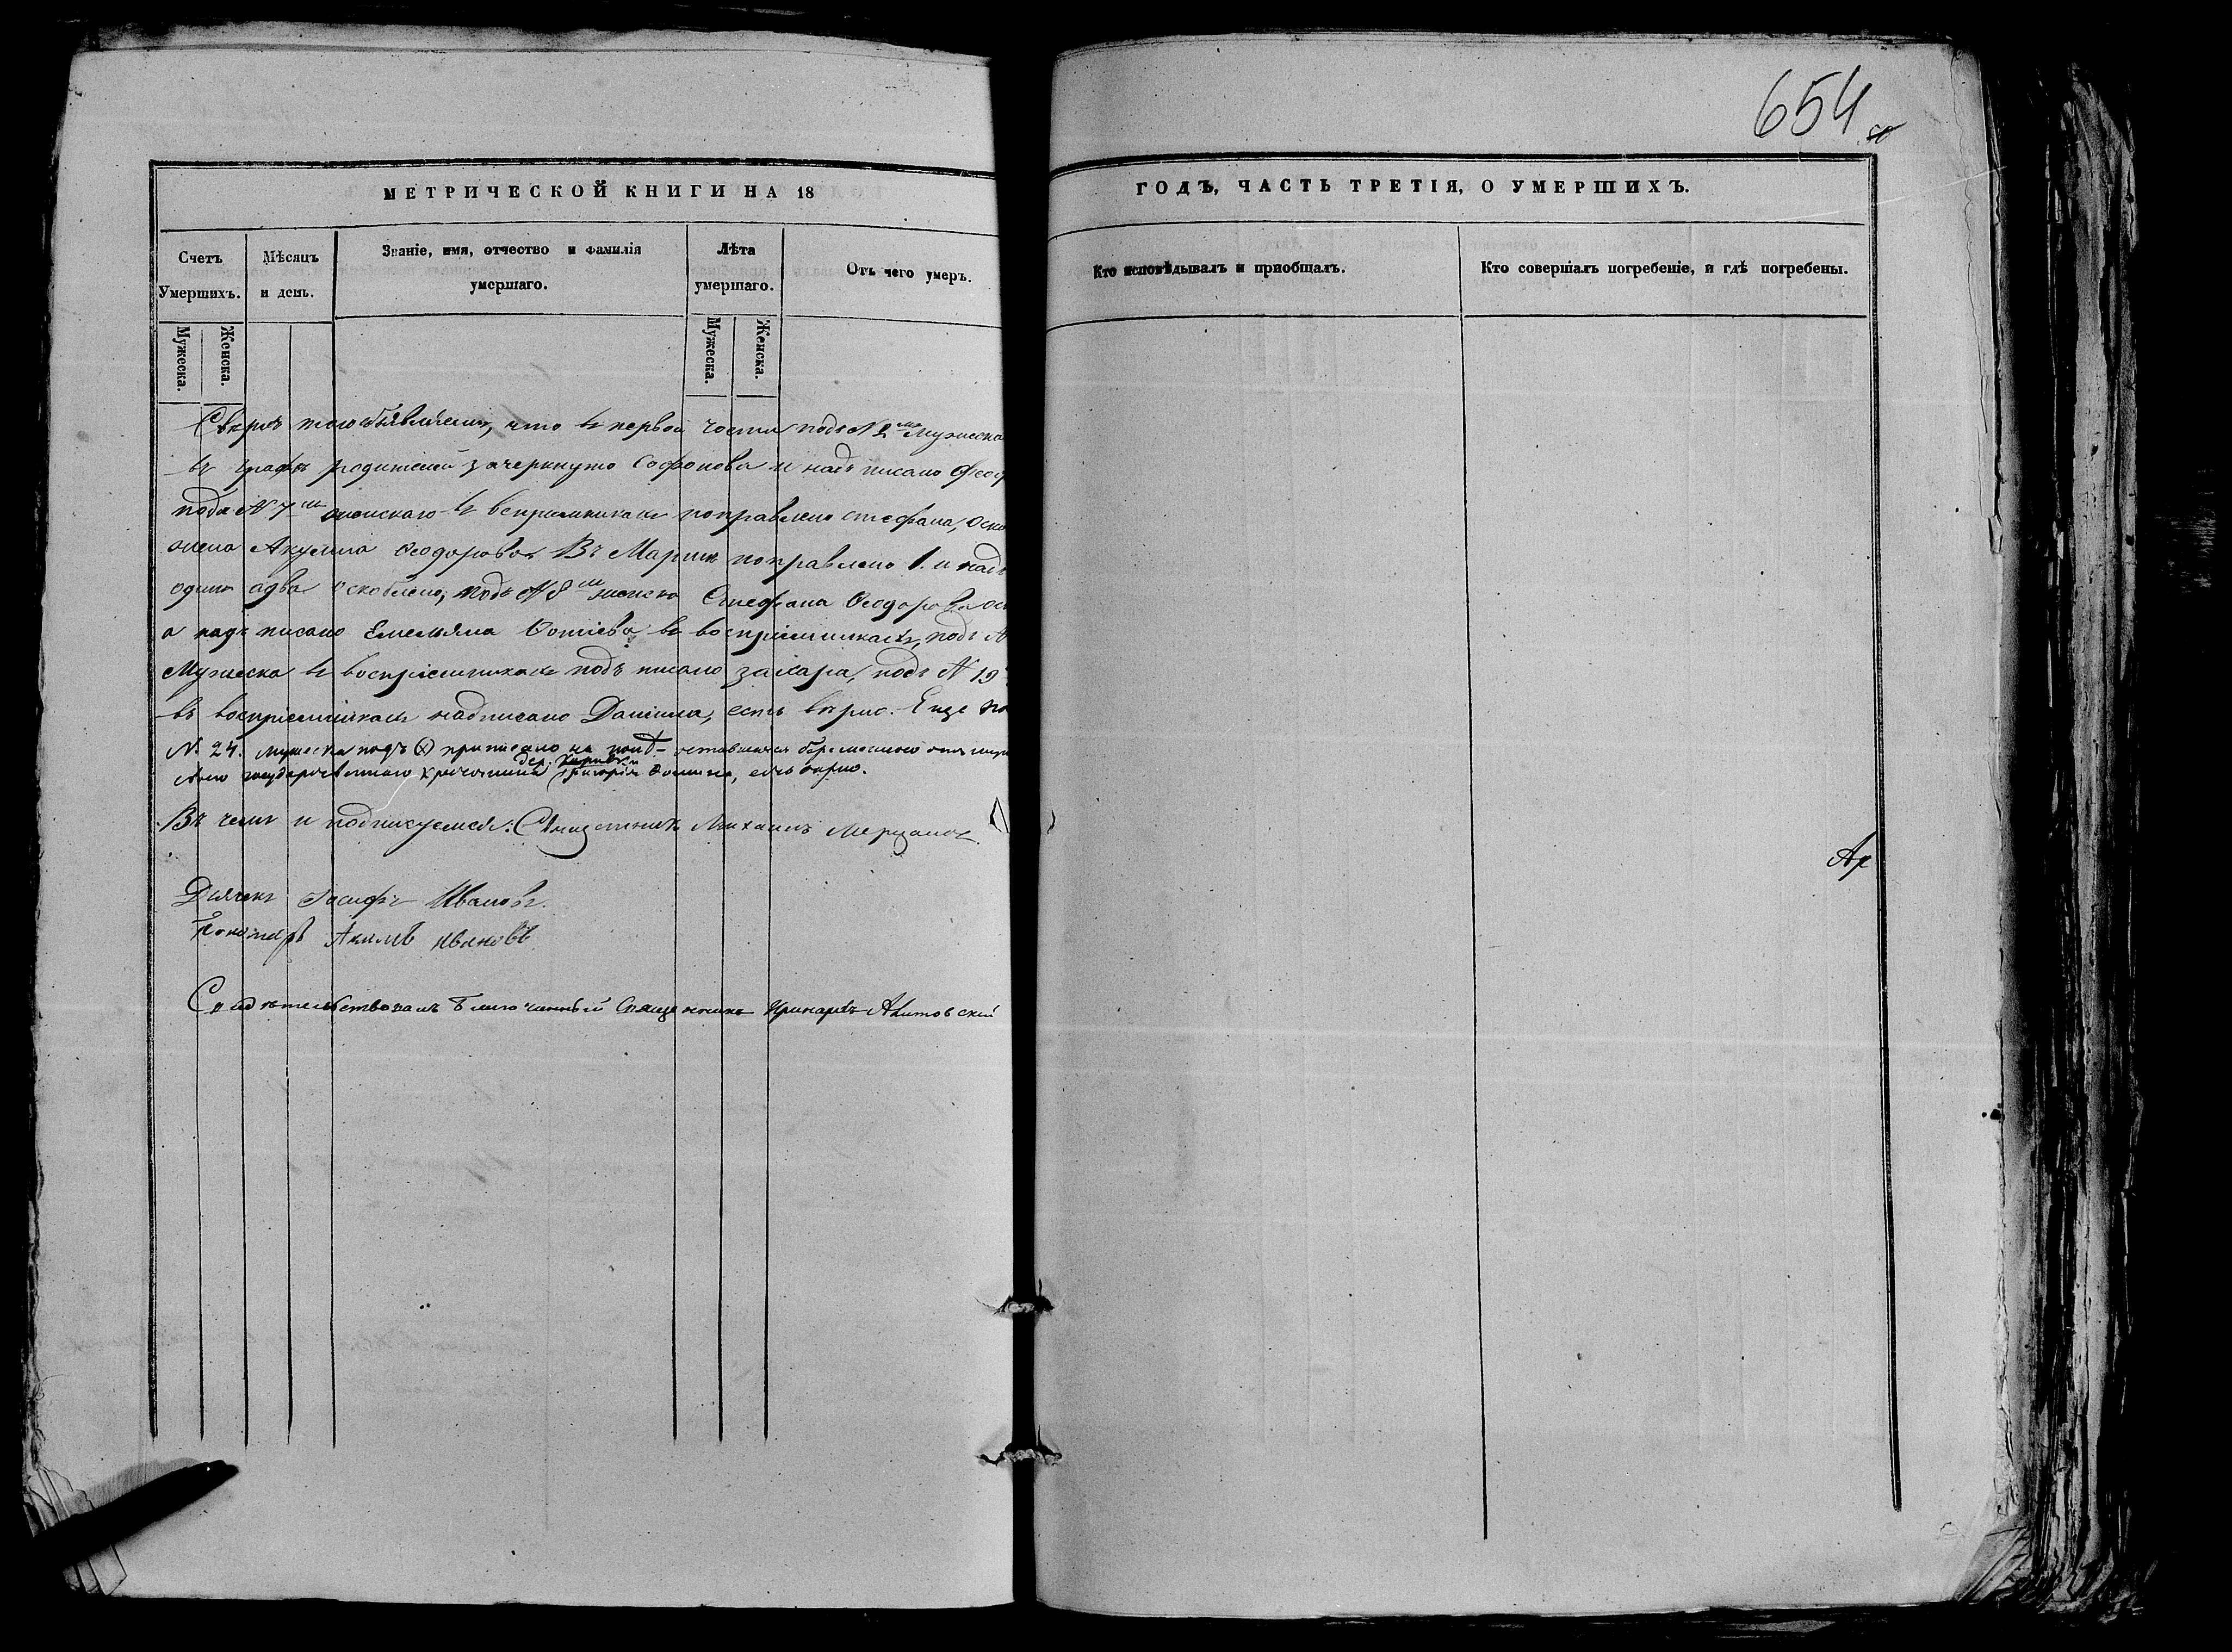 654
МЕТРИЧЕСКОЙ КНИГИ НА 18
ГОДЪ, ЧАСТЬ ТРЕТІЯ, О УМЕРШИХЪ.
Счетъ Умершихъ.
Мѣсяцъ и день.
Званіе, имя, отчество и фамилія умершаго.
Лѣта умершаго.
Отъ чего умеръ.
Кто исповѣдывалъ и пріобщалъ.
Кто совершалъ погребеніе, и гдѣ погребены.
Мужеска.
Женска.
Мужеска.
Женска.
Сверхъ того объявляемъ, что въ первой части подъ N 2мъ Мужеска
въ графѣ родителей зачеркнуто Софонова и надъ писано
подъ N 7мъ женскаго въ воспріемникахъ поправлено Стефана,
жена Акулина Ѳеодорова. Въ Мартѣ поправлено 1. и надъ
одинъ а два оскоблено, подъ N 8мъ женска Стефана Ѳеодорова
а надъ писано Емельяна Фотіева въ воспріемникахъ, подъ
Мужеска въ воспріемникахъ подъ писано Захара, подъ N 19
въ воспріемникахъ надписано Даніила, есть вѣрно. Еще
N. 24. мужеска подъ приписано оставшаяся беременною отъ
государственного крестьянина дер. Григорія Фомина, есть вѣрно.
Въ чемъ и подписуемся. Священникъ Михаилъ Мерцаловъ
Дьячекъ Іосифъ Ивановъ.
Пономарь Акимъ Ивановъ
Свидѣтельствовалъ Благочинный Священникъ Принархъ